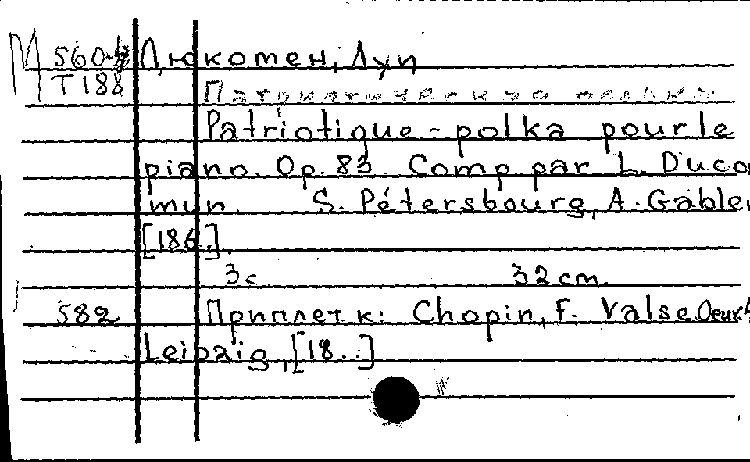 М 560-4 Дюкомен, Луи
Т188
Патриотическая полька
Patriotique-polka pour le
piano. Op. 83 Comp par L. Ducom
mun. S. Pétersbourg, A. Gabler
[186.]
3с 32 cm.
582 Приплет к: Chopin, F. Valse.
Leipzig, [18..]